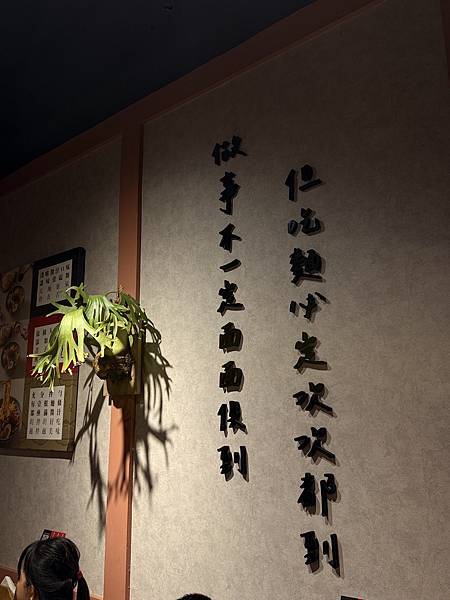 做事不一定面面俱到
但吃麵必定次次都到